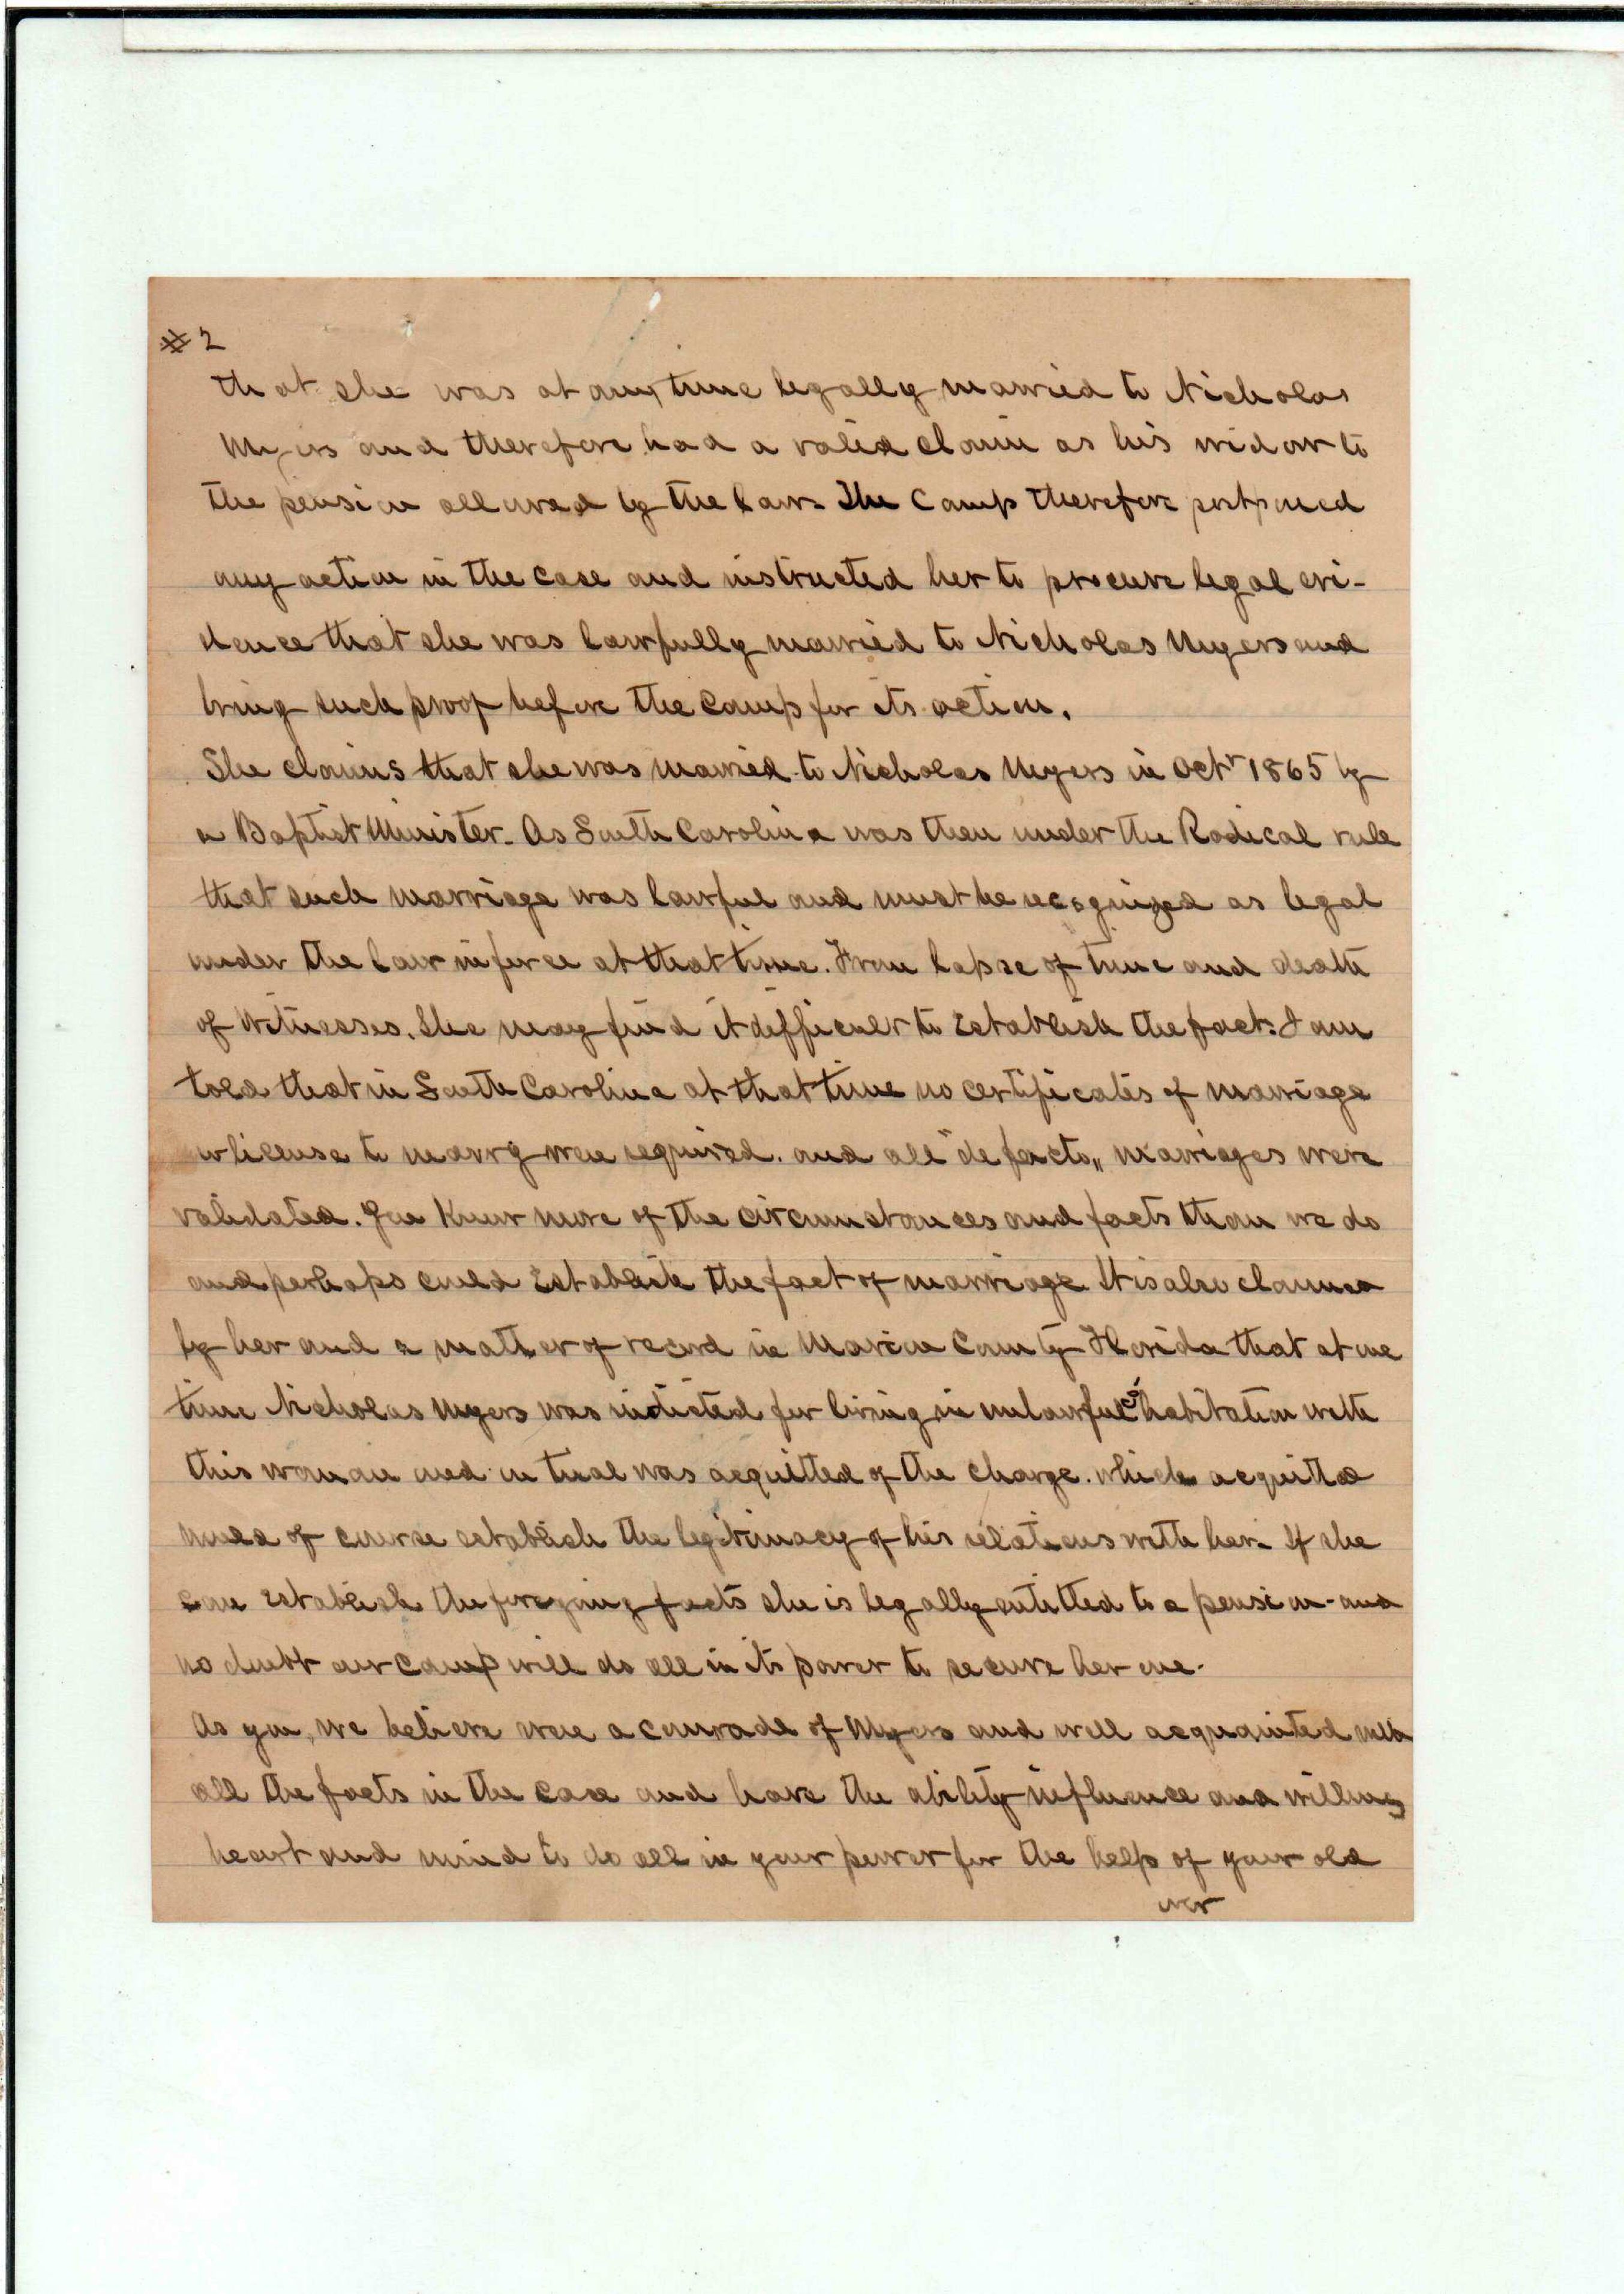 #2
that she was at any time legally married to Nicholas
Myers and therefore had a valid claim as his widow to
the pension allowed by the law. The Camp therefore postponed
any action in the case and instructed her to procure legal evi-
dence that she was lawfully married to Nicholas Myers and
bring such proof before the Camp for its action.
She claims that she was married to Nicholas Myers in Octr 1865 by
a Baptist Minister. As South Carolina was then under the Radical rule
that such marriage was lawful and must be recognized as legal
under the law in force at that time. From lapse of time and death
of witnesses. She may find it difficult to establish the fact. I am
told that in South Carolina at that time no certificates of marriage
or license to marry were required. and all "de facto" marriages were
validated. You know more of the circumstances and facts than we do
and perhaps could establish the fact of marriage. It is also claimed
by her and a matter of record in Marion County Florida that at one
time Nicholas Myers was indicted for living in unlawful cohabitation with
this woman and on trial was acquitted of the charge. which acquittal
would of course establish the legitimacy of his relations with her. If she
can establish the foregoing facts she is legally entitled to a pension - and
no doubt our Camp will do all in its power to secure her one.
As you, we believe were a comrade of Myers and well acquainted with
all the facts in the case and have the ability influence and willing
heart and mind to do all in your power for the help of your old
over